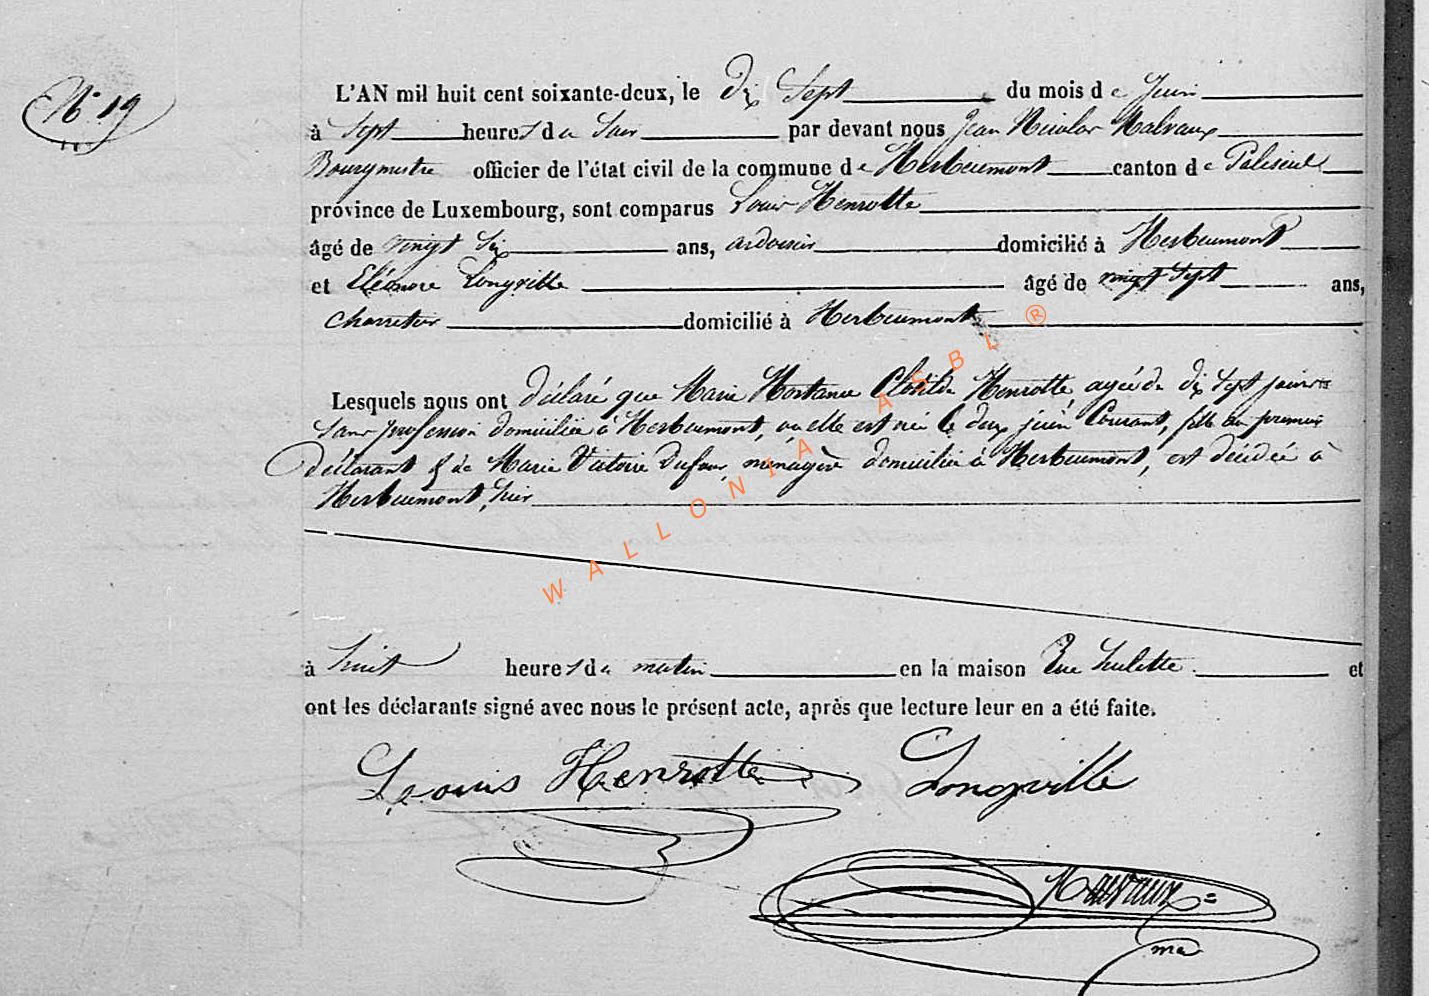 N° 19
L'AN mil huit cent soixante-deux, le dix Sept du mois de Juin
à Sept heures du Soir par devant nous Jean Nicolas Malvaux
Bourgmestre officier de l'état civil de la commune de Herbeumont canton de Paliseul
province de Luxembourg, sont comparus Louis Henrotte
âgé de vingt Six ans, ardoisier domicilié à Herbeumont
et Eléonore Longville âgé de vingt Sept ans,
charretier domicilié à Herbeumont
Lesquels nous ont déclaré que Marie Hortance Clotilde Henrotte, agée de dix Sept jours
Sans profession domiciliée à Herbeumont, ou elle est née le deux juin Courant, fille du premier
déclarant & de Marie Victoire Dufour, menagère domiciliée à Herbeumont, est décédée à
Herbeumont, hier
à huit heures du matin en la maison Rue et
ont les déclarants signé avec nous le présent acte, après que lecture leur en a été faite.
Louis Henrotte Longville
Malvaux
WALLONIA ASBL ®